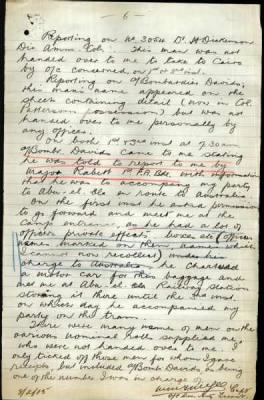 - 6 -
Reporting on No. 3054 Dr. H Dickinson
Div. Amm. Col. This man was not
handed over to me to take to Cairo
by O/C concerned, on 1st or 3rd inst.
Reporting on Bombardier Davids,
this man's name appeared on the
sheet containing detail (now in Col.
possession) but was not
handed over to me personally by
any officer.
On both 1st & 3rd inst at 7.30am
Bombr. Davids came to me stating
he was told to report to me by
Major Rabett 1st F.A. Bde. with information
that he was to accompany my party
to Abu-el-Ela en route to Australia.
On the first inst he asked permission
to go forward and meet me at the
camp entrance as he had a lot of
officers private effects, boxes etc (officers
names marked on them, names which
I cannot now recollect) under his
charge to Australia. He chartered
a motor car for their baggage and
met me at Abu-el-Ela Railway station
storing it there until the 3rd inst.
on which day he accompanied my
party on the train.
There were many names of men on the
various nominal rolls supplied me
who were not handed over to me. I
only ticked off those men for whom I gave
receipts, but included Bombr Davids as being
one of the number I was in charge of.
Capt